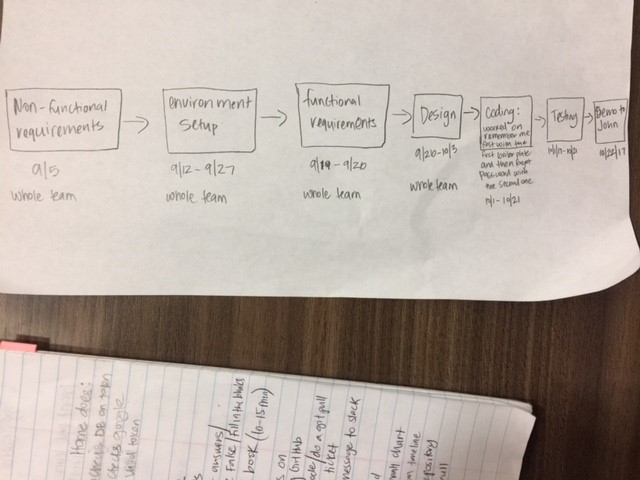 Non-functional
requirements
9/5
whole team
environment
setup
9/12 - 9/27
whole team
functional
requirements
9/19 - 9/26
whole team
Design
9/26-10/3
whole team
Coding:
worked on
remember me
first with the
first boiler plate
and then forgot
password with
the second one.
10/21
Testing
Demo to
John
10/25/17
Home dale:
DB on token
google
valid token
answers/
Fake/Fill in the blanks
book (10-15 min)
s on
GitHub
do a got pull
ticket
message to slack
chart
timeline